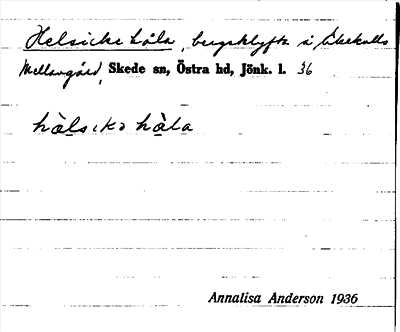 Helsicke håla, bergsklyfta i Åkekulls
Mellangård, Skede sn, Östra hd, Jönk. l. 36
hälsikə håla
Annalisa Anderson 1936